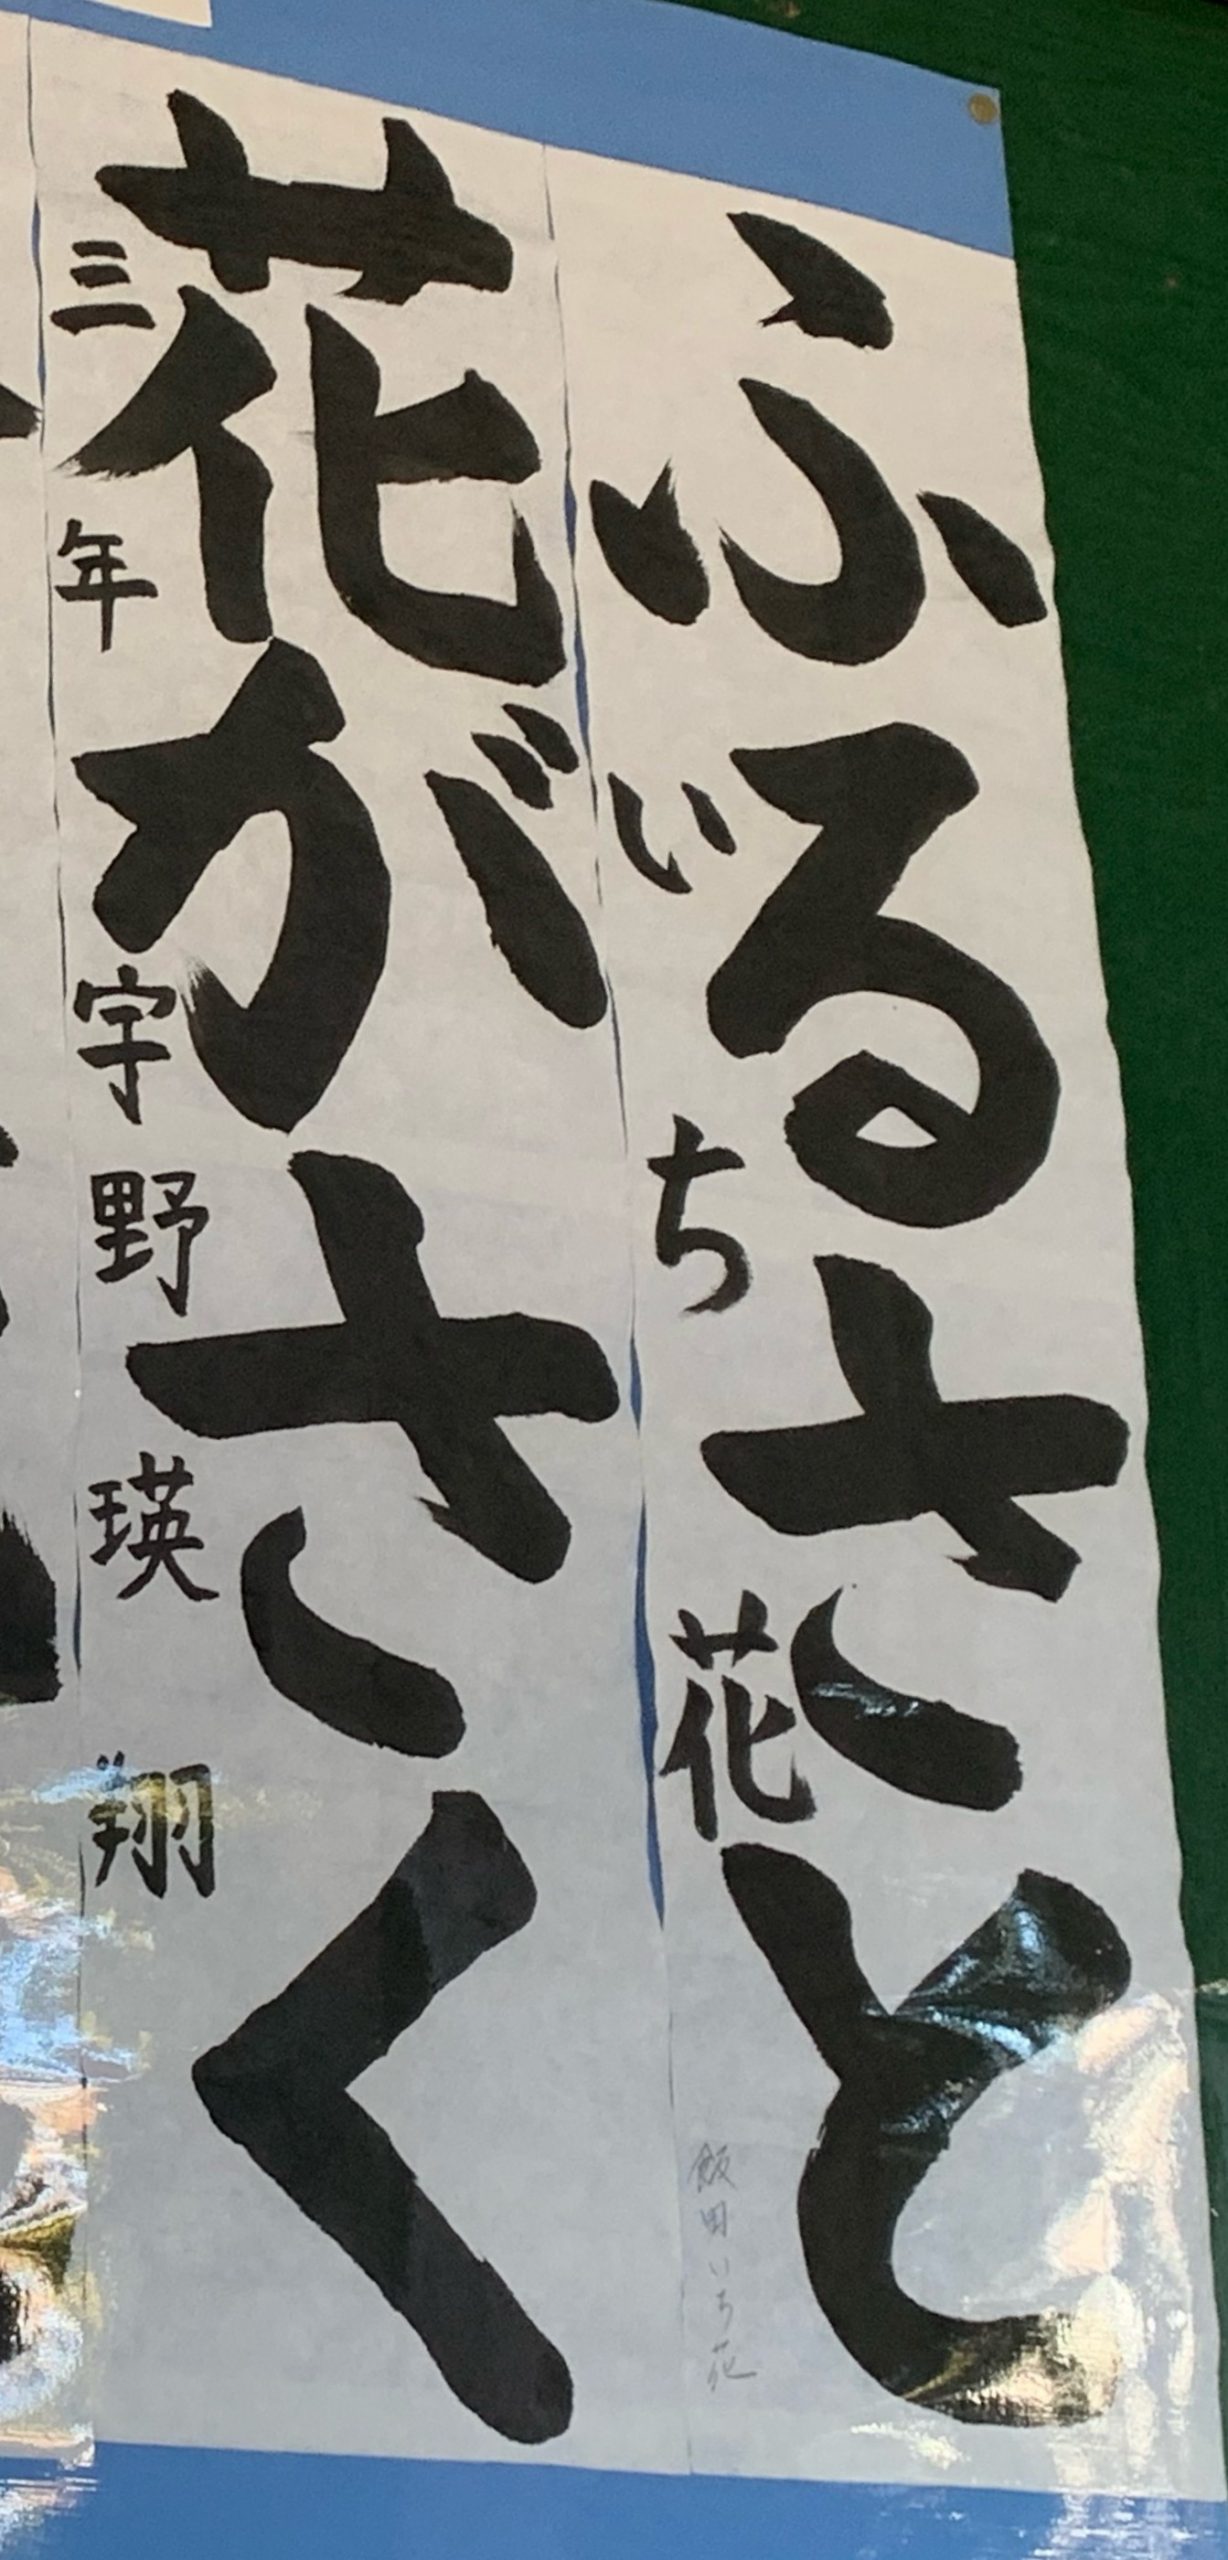 ふるさと
いち花
飯田いち花
花がさく
三年 宇野瑛翔